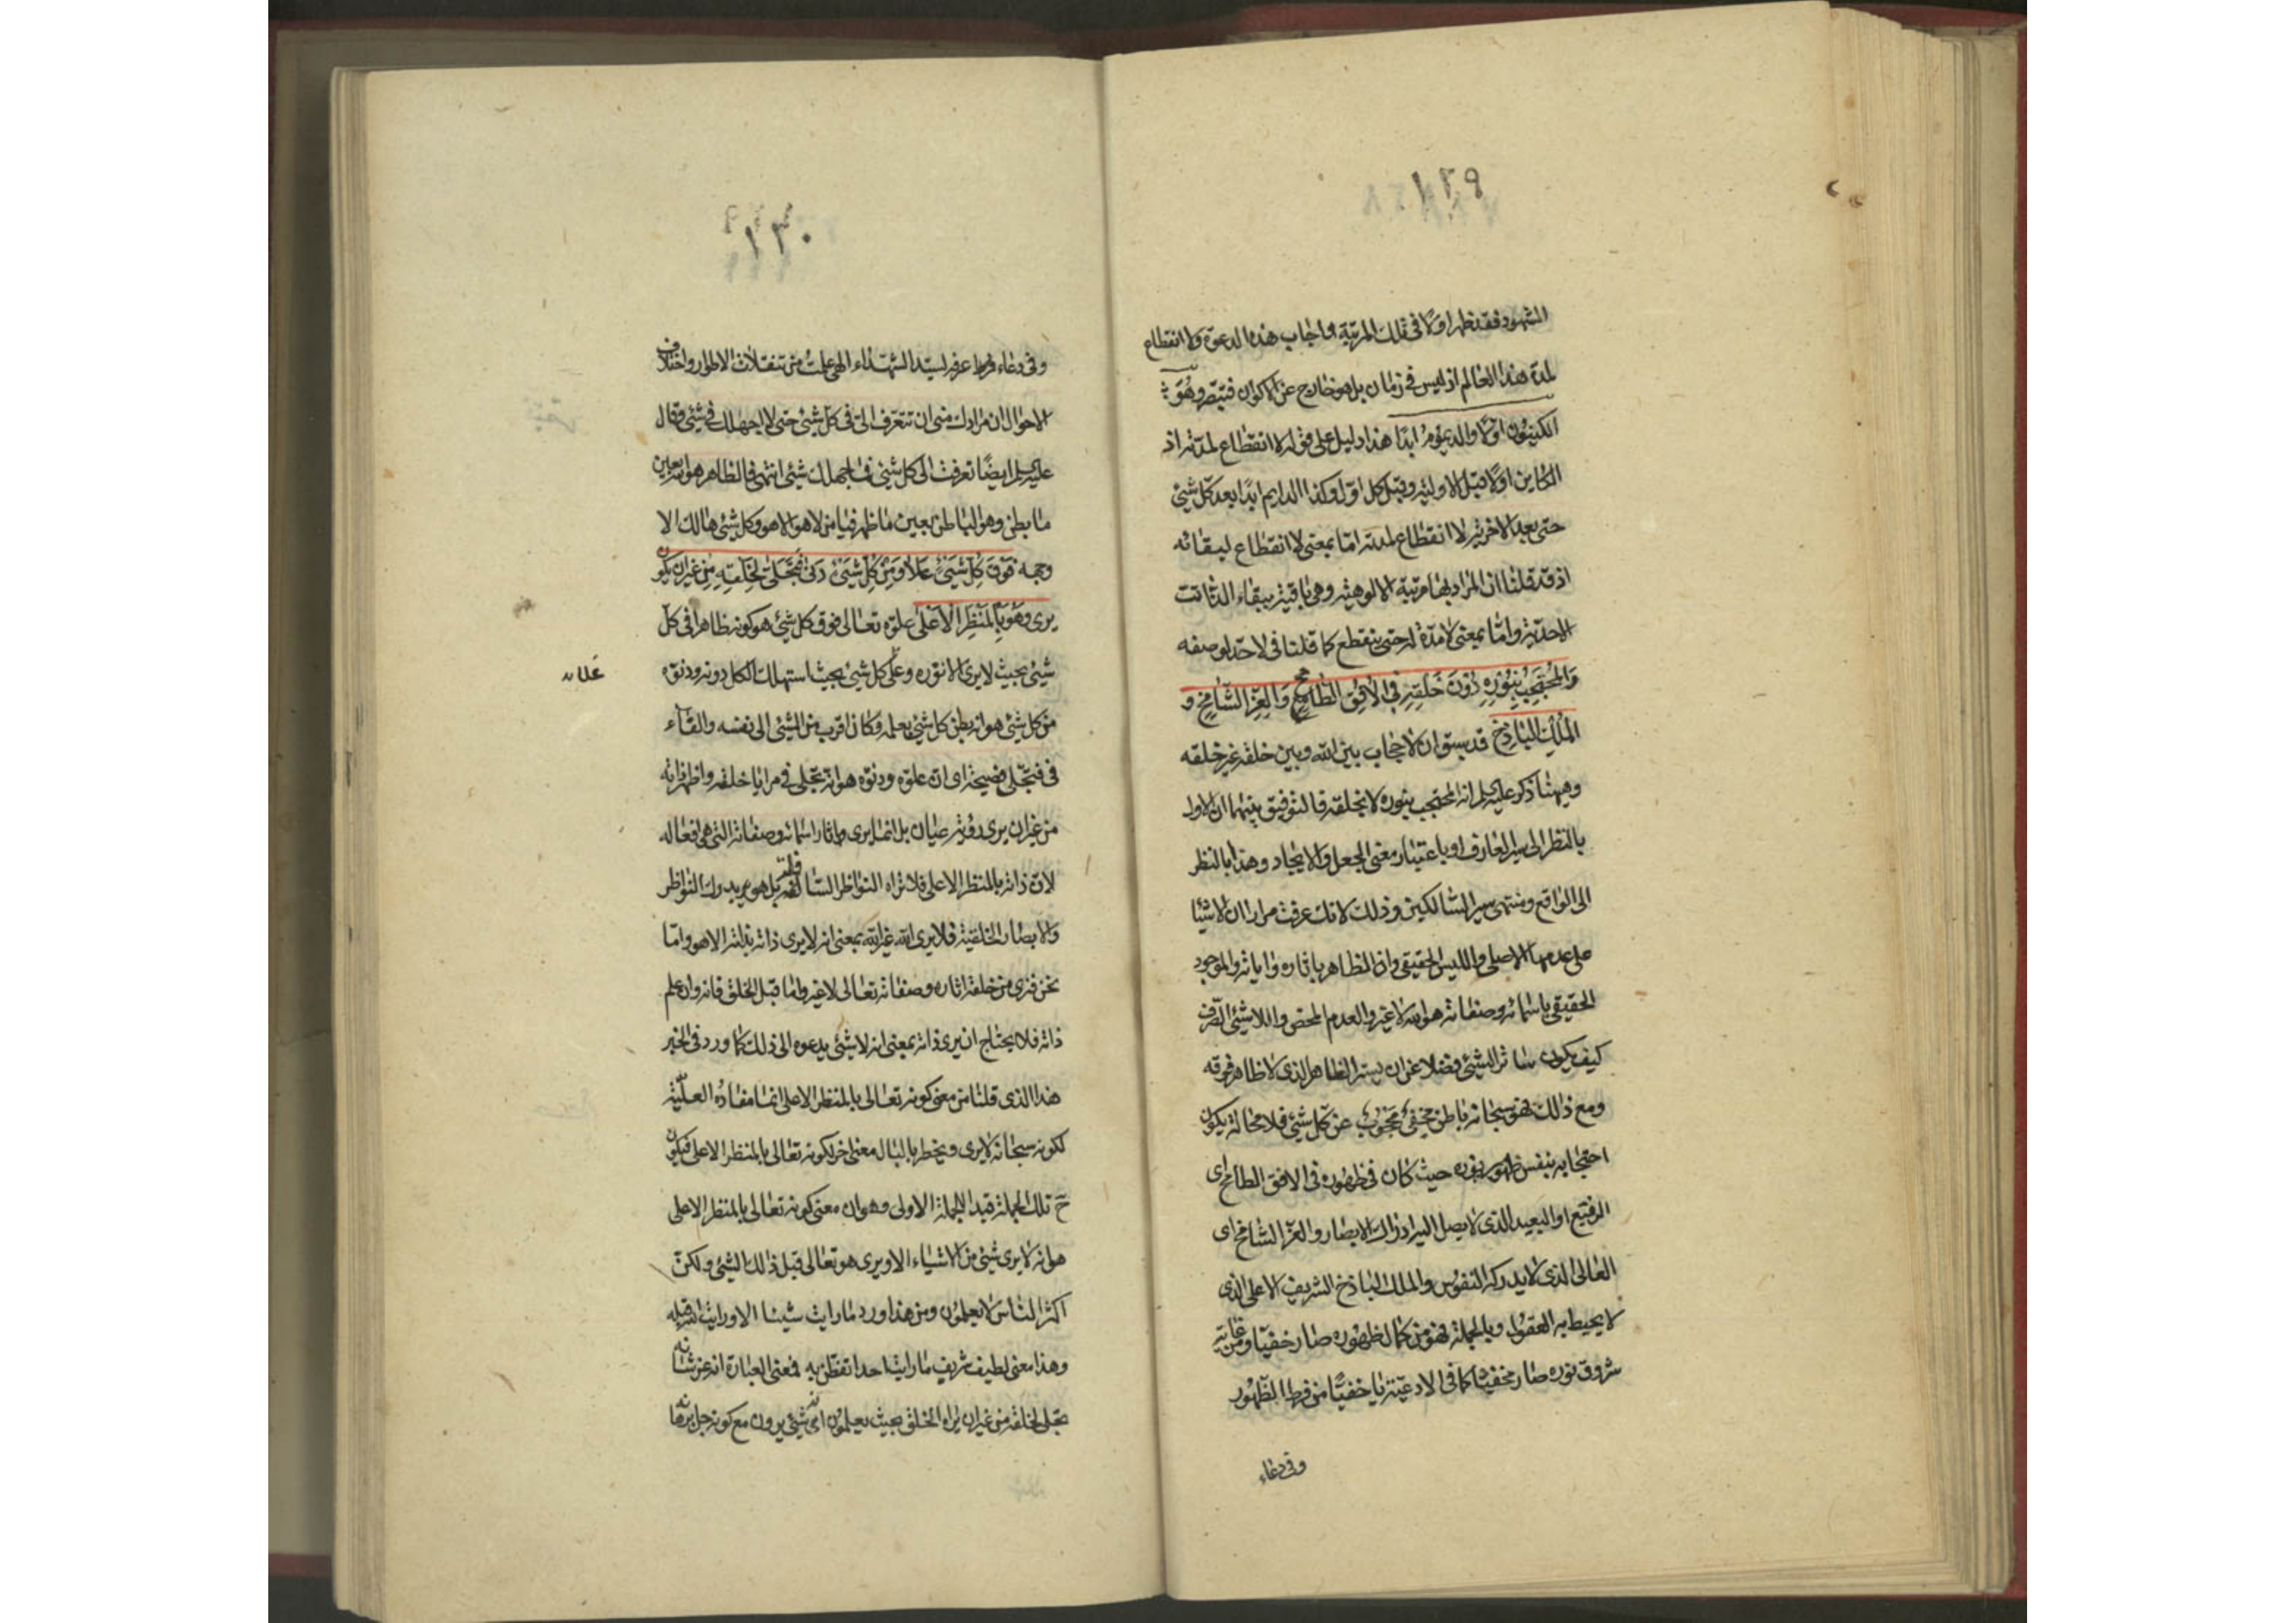 ١٢٩
الشهود فقد ظهر اولا في تلك المرتبة واجاب هذه الدعوة ولا انقطاع
لمدة هذا العالم اذ ليس في زمان بل هو خارج عن الاكوان فتبصر وهو
الكينون اولا والديموم ابدا هذا دليل على قوله لا انقطاع لمدته اذ
الكاين اولا قبل الاولية وقبل كل اول وكذا الدايم ابدا بعد كل شئ
حتى بعد الاخرية لا انقطاع لمدته اما بمعنى لا انقطاع لبقائه
اذ قد قلنا ان المراد بها مرتبة الالوهية وهي باقية ببقاء الذات
الاحدية واما بمعنى لا مدة له حتى ينقطع كما قلنا في لا حد لوصفه
وَالمُحْتَجِبُ بِنُورِهِ دُونَ خَلْقِهِ فِي الاُفُقِ الطَّامِحِ وَالعِزِّ الشَّامِخِ و
المُلْكِ البَاذِخِ قد سبق ان لا حجاب بين الله وبين خلقه غير خلقه
وهيهنا ذكر عليه السلام انه المحتجب بنوره لا بخلقه فالتوفيق بينهما ان الاول
بالنظر الى سير العارف او باعتبار معنى الجعل والايجاد وهذا بالنظر
الى الواقع ومنتهى سير السالكين وذلك لانك عرفت مرارا ان الاشيا
على عدمها الاصلي والليس الحقيقي وان الظاهر باثاره واياته والموجود
الحقيقي باسمائه وصفاته هو الله لا غير والعدم المحض واللاشئ الصرف
كيف يكون ساتر الشئ فضلا عن ان يستر الظاهر الذي لا ظاهر فوقه
ومع ذلك فهو سبحانه باطن مخفي محجوب عن كل شئ فلا محالة يكون
احتجابه بنفس ظهور نوره حيث كان في ظهوره في الافق الطامح اى
الرفيع او البعيد الذي لا يصل اليه ادراك الابصار والعز الشامخ اى
العالي الذي لا يدركه النفوس والملك الباذخ الشريف الاعلى الذي
لا يحيط به العقول وبالجملة فهو من كمال ظهوره صار خفيا ومن غاية
شروق نوره صار مخفيا كما في الادعية يا خفيا من فرط الظهور
وفي دعاء
١٣٠
وفي دعاء عرفه لسيد الشهداء الهي علمت من تنقلات الاطوار واختلاف
الاحوال ان مرادك مني ان تتعرف الي في كل شئ حتى لا اجهلك في شئ وقال
عليه السلام ايضا تعرفت الى كل شئ فما جهلك شئ انتهى فالظاهر هو انه بعين
ما بطن وهو الباطن بعين ما ظهر فيا من لا هو الا هو وكل شئ هالك الا
وجهه فَوقَ كُلِّ شَئٍ عَلا وَمِن كُلِّ شَئٍ دَنى فَتَجَلّى لِخَلقِهِ مِن غَيرِ ان يكون
يرى وَهُوَ بِالمَنظَرِ الاَعلى علوه تعالى فوق كل شئ هو كونه ظاهرا في كل
شئ بحيث لا يرى الا نوره وعلى كل شئ بحيث استهلك الكل دونه ودنوه
علان
من كل شئ هو انه بطن كل شئ بعلمه فكان اقرب من الشئ الى نفسه والفاء
في فتجلى فصيحة اى ان علوه ودنوه هو انه تجلى في مرايا خلقه واظهر ذاته
من غير ان يرى رؤية عيان بل انما يرى واثار اسمائه وصفاته التي هي افعاله
لان ذاته بالمنظر الاعلى فلا تراه النواظر السافلة بل هو يدرك النواظر
والابصار الخلقية فلا يرى الله غير الله بمعنى انه لا يرى ذاته بذاته الا هو واما
نحن فنرى من خلقه اثاره وصفاته تعالى لا غير واما قبل الخلق فانه وان علم
ذاته فلا يحتاج ان يرى ذاته بمعنى انه لا شئ يدعوه الى ذلك كما ورد في الخبر
هذا الذي قلنا من معنى كونه تعالى بالمنظر الاعلى انما مفاده العلية
لكونه سبحانه لا يرى ويخطر بالبال معنى اخر لكونه تعالى بالمنظر الاعلى فيكون
ح تلك الجملة قيد الجملة الاولى وهو ان معنى كونه تعالى بالمنظر الاعلى
هو انه لا يرى شئ من الاشياء الا ويرى هو تعالى قبل ذلك الشئ ولكن
اكثر الناس لا يعلمون ومن هذا ورد ما رايت شيئا الا ورايت الله قبله
وهذا معنى لطيف شريف ما رايت احدا تفطن به فمعنى العبارة انه عز شانه
تجلى لخلقه من غير ان يراه الخلق بحيث يعلمون اى شئ يرون مع كونه جل برهانه